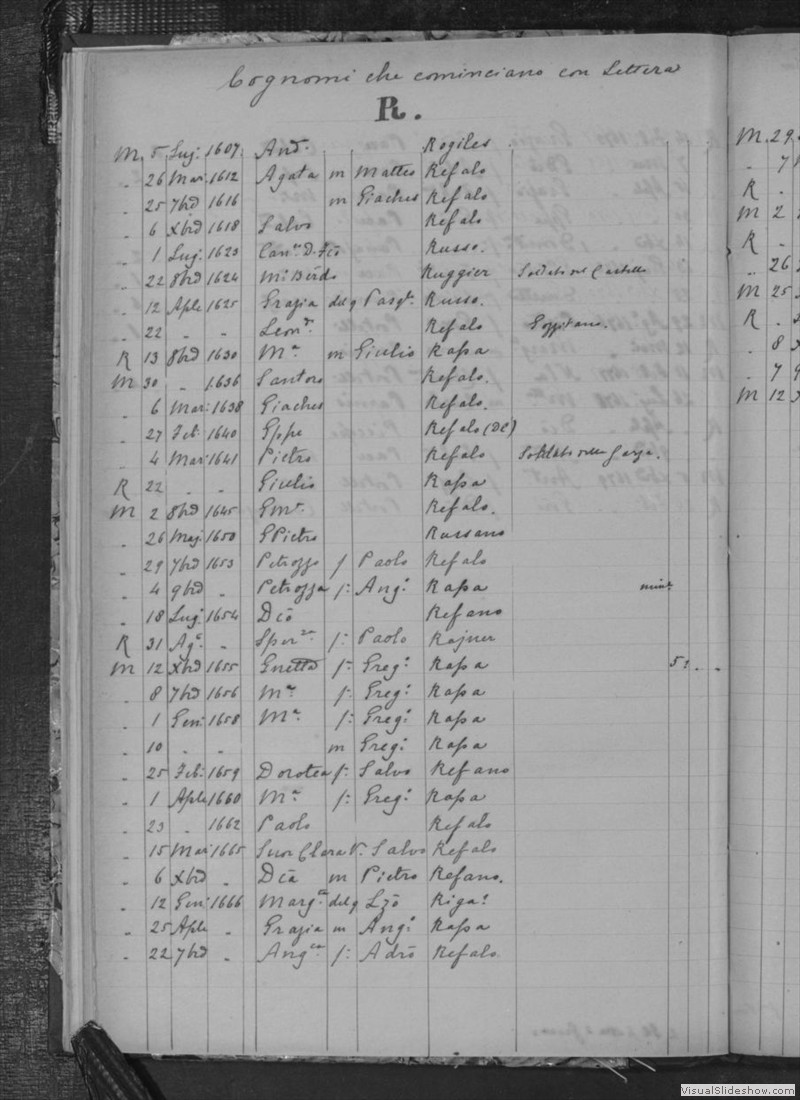 Cognomi che cominciano con Lettera
R.
M. 5 Lug: 1607. And. Rogiles
" 26 Mar: 1612 Agata m Matteo Refalo
" 25 7brd 1616 m Giaches Refalo
" 6 Xbrd 1618 Salvo Refalo
" 1 Lug: 1623 Russo.
" 22 8brd 1624 Ruggier Soldato nel Castello
" 12 Aple 1625 Grazia delq Pasq.le Russo.
" 22 " " Leon.a Refalo Gozzitano.
R 13 8brd 1630 M.a m Giulio Rassa
M 30 " 1636 Santoro Refalo.
" 6 Mar: 1638 Giaches Refalo.
" 27 Feb: 1640 Gppe Refalo (De)
" 4 Mar: 1641 Pietro Refalo
R 22 " " Giulio Rassa
M 2 8brd 1645 Refalo.
" 26 Mag 1650 GPietro Russano
" 29 7brd 1653 f Paolo Refalo
" 4 9brd " Petrozza f: Ang: Rassa min.e
" 18 Lug: 1654 Dco Refano
R 31 Ag: " f: Paolo Rajner
M 12 Xbrd 1655 f: Greg: Rassa 5: " "
" 8 7brd 1656 M.a f: Greg: Rassa
" 1 Gen: 1658 M.a f: Greg: Rassa
" 10 " " m Greg: Rassa
" 25 Feb: 1659 Dorotea f: Salvo Refano
" 1 Aple 1660 M.a f: Greg: Rassa
" 23 " 1662 Paolo Refalo
" 15 Mar 1665 Suor Clara V. Salvo Refalo
" 6 Xbrd " Dca m Pietro Refano.
" 12 Gen: 1666 Marg.ta delq Lzo Riga?
" 25 Aple " Grazia m Ang: Rassa
" 22 7brd " Ang.ca f: Adro Refalo
M. 29
" 7
R "
M 2
R "
" 26
M 25
R "
" 8
" 7
M 12
VisualSlideshow.com